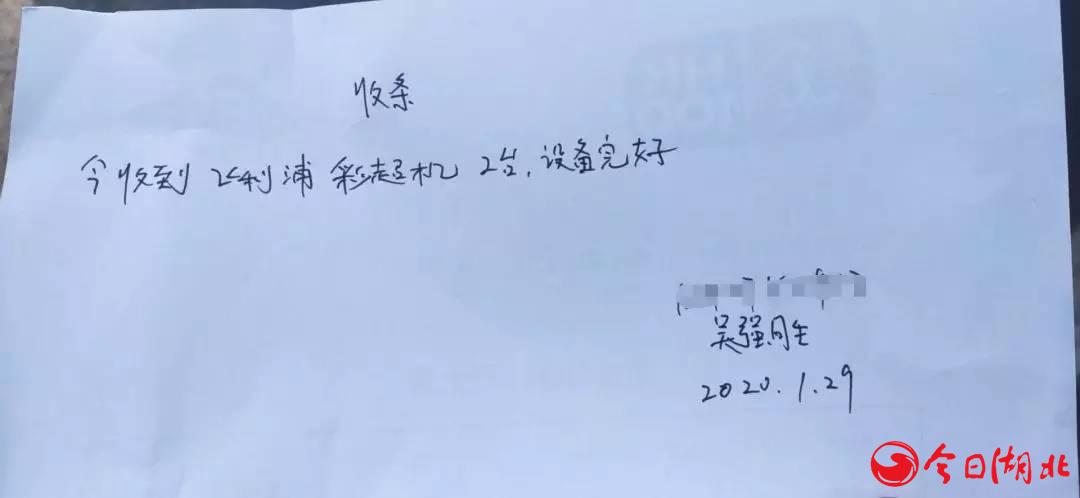 收条
今收到 飞利浦 彩超机 2台,设备完好
吴强
2020.1.29
今日湖北